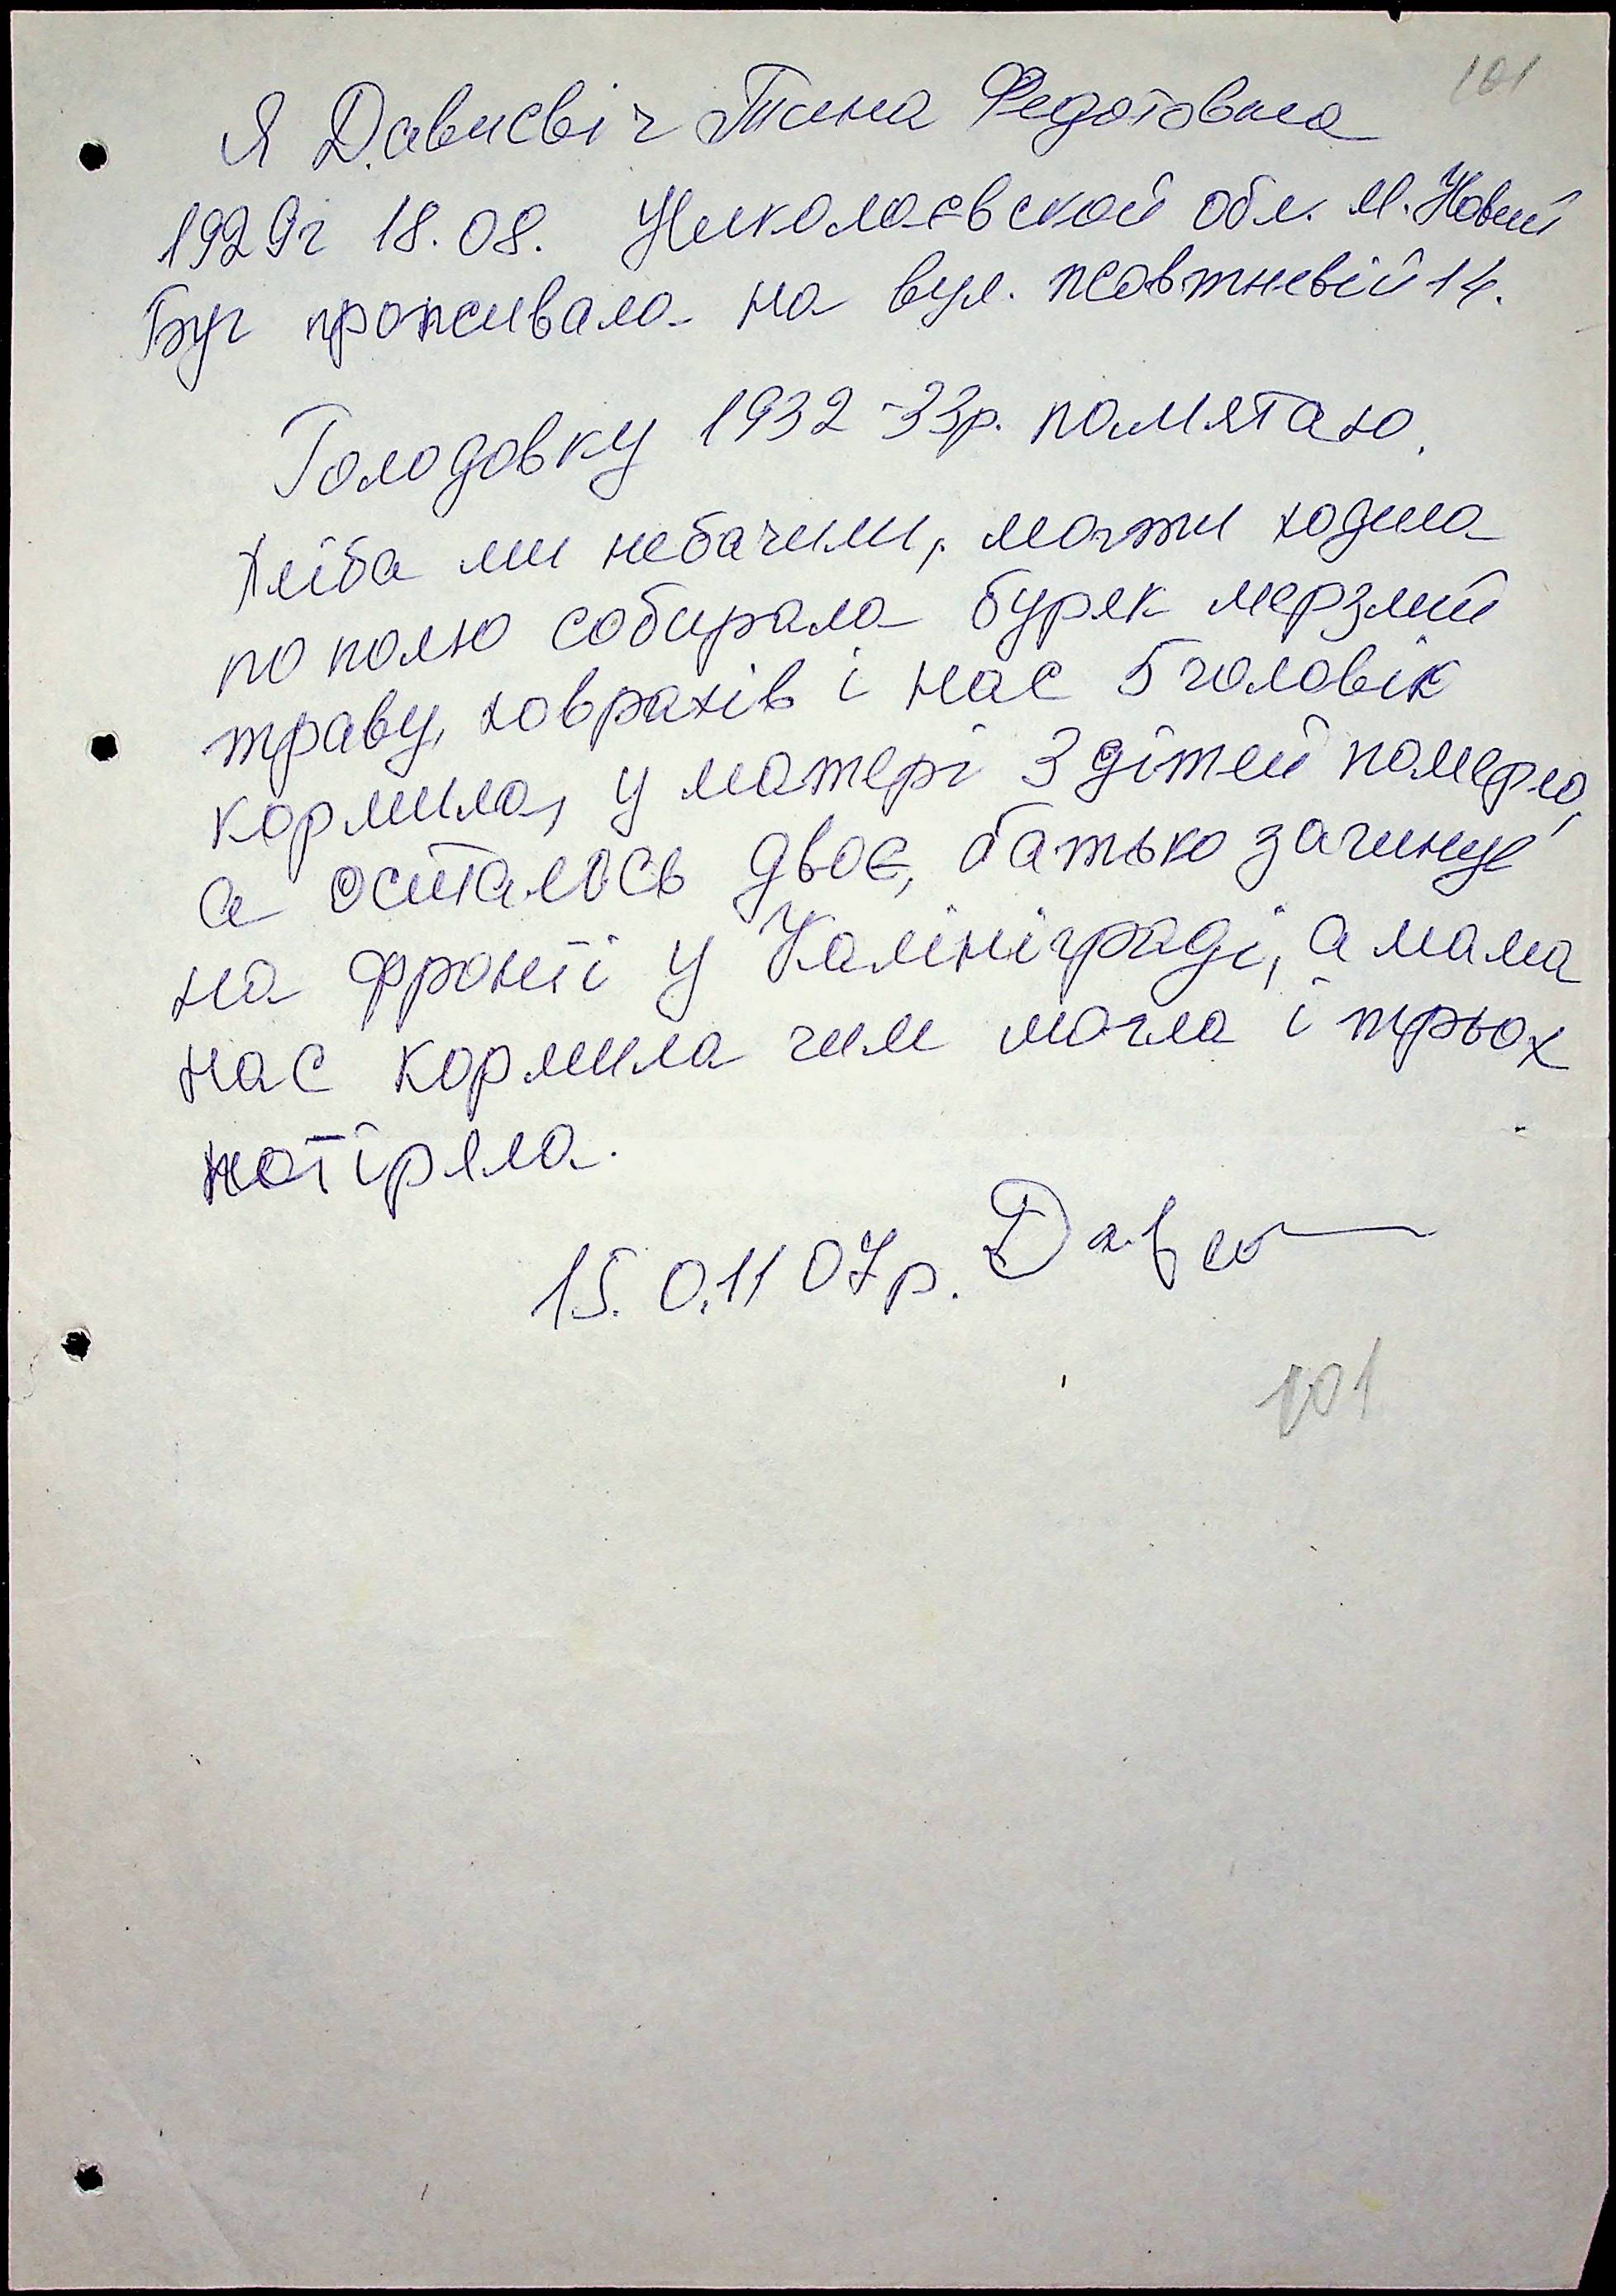 101
Я Дависвіч Тина Федотовна
1929г 18.08. Николаєвской обл. м. Новий
Буг проживала на вул. жовтневій 14.
Голодовку 1932-33р. помятаю.
Хліба ми небачили, мати ходила
по полю собирала буряк мерзлий
траву, ховрахів і нас 5 чоловік
кормила, у матері 3 дітей померло,
а осталось двоє, батько загинув
на фронті у Калініграді, а мама
нас кормила чим могла і трьох
потіряла.
15. 0.11 07р.
101